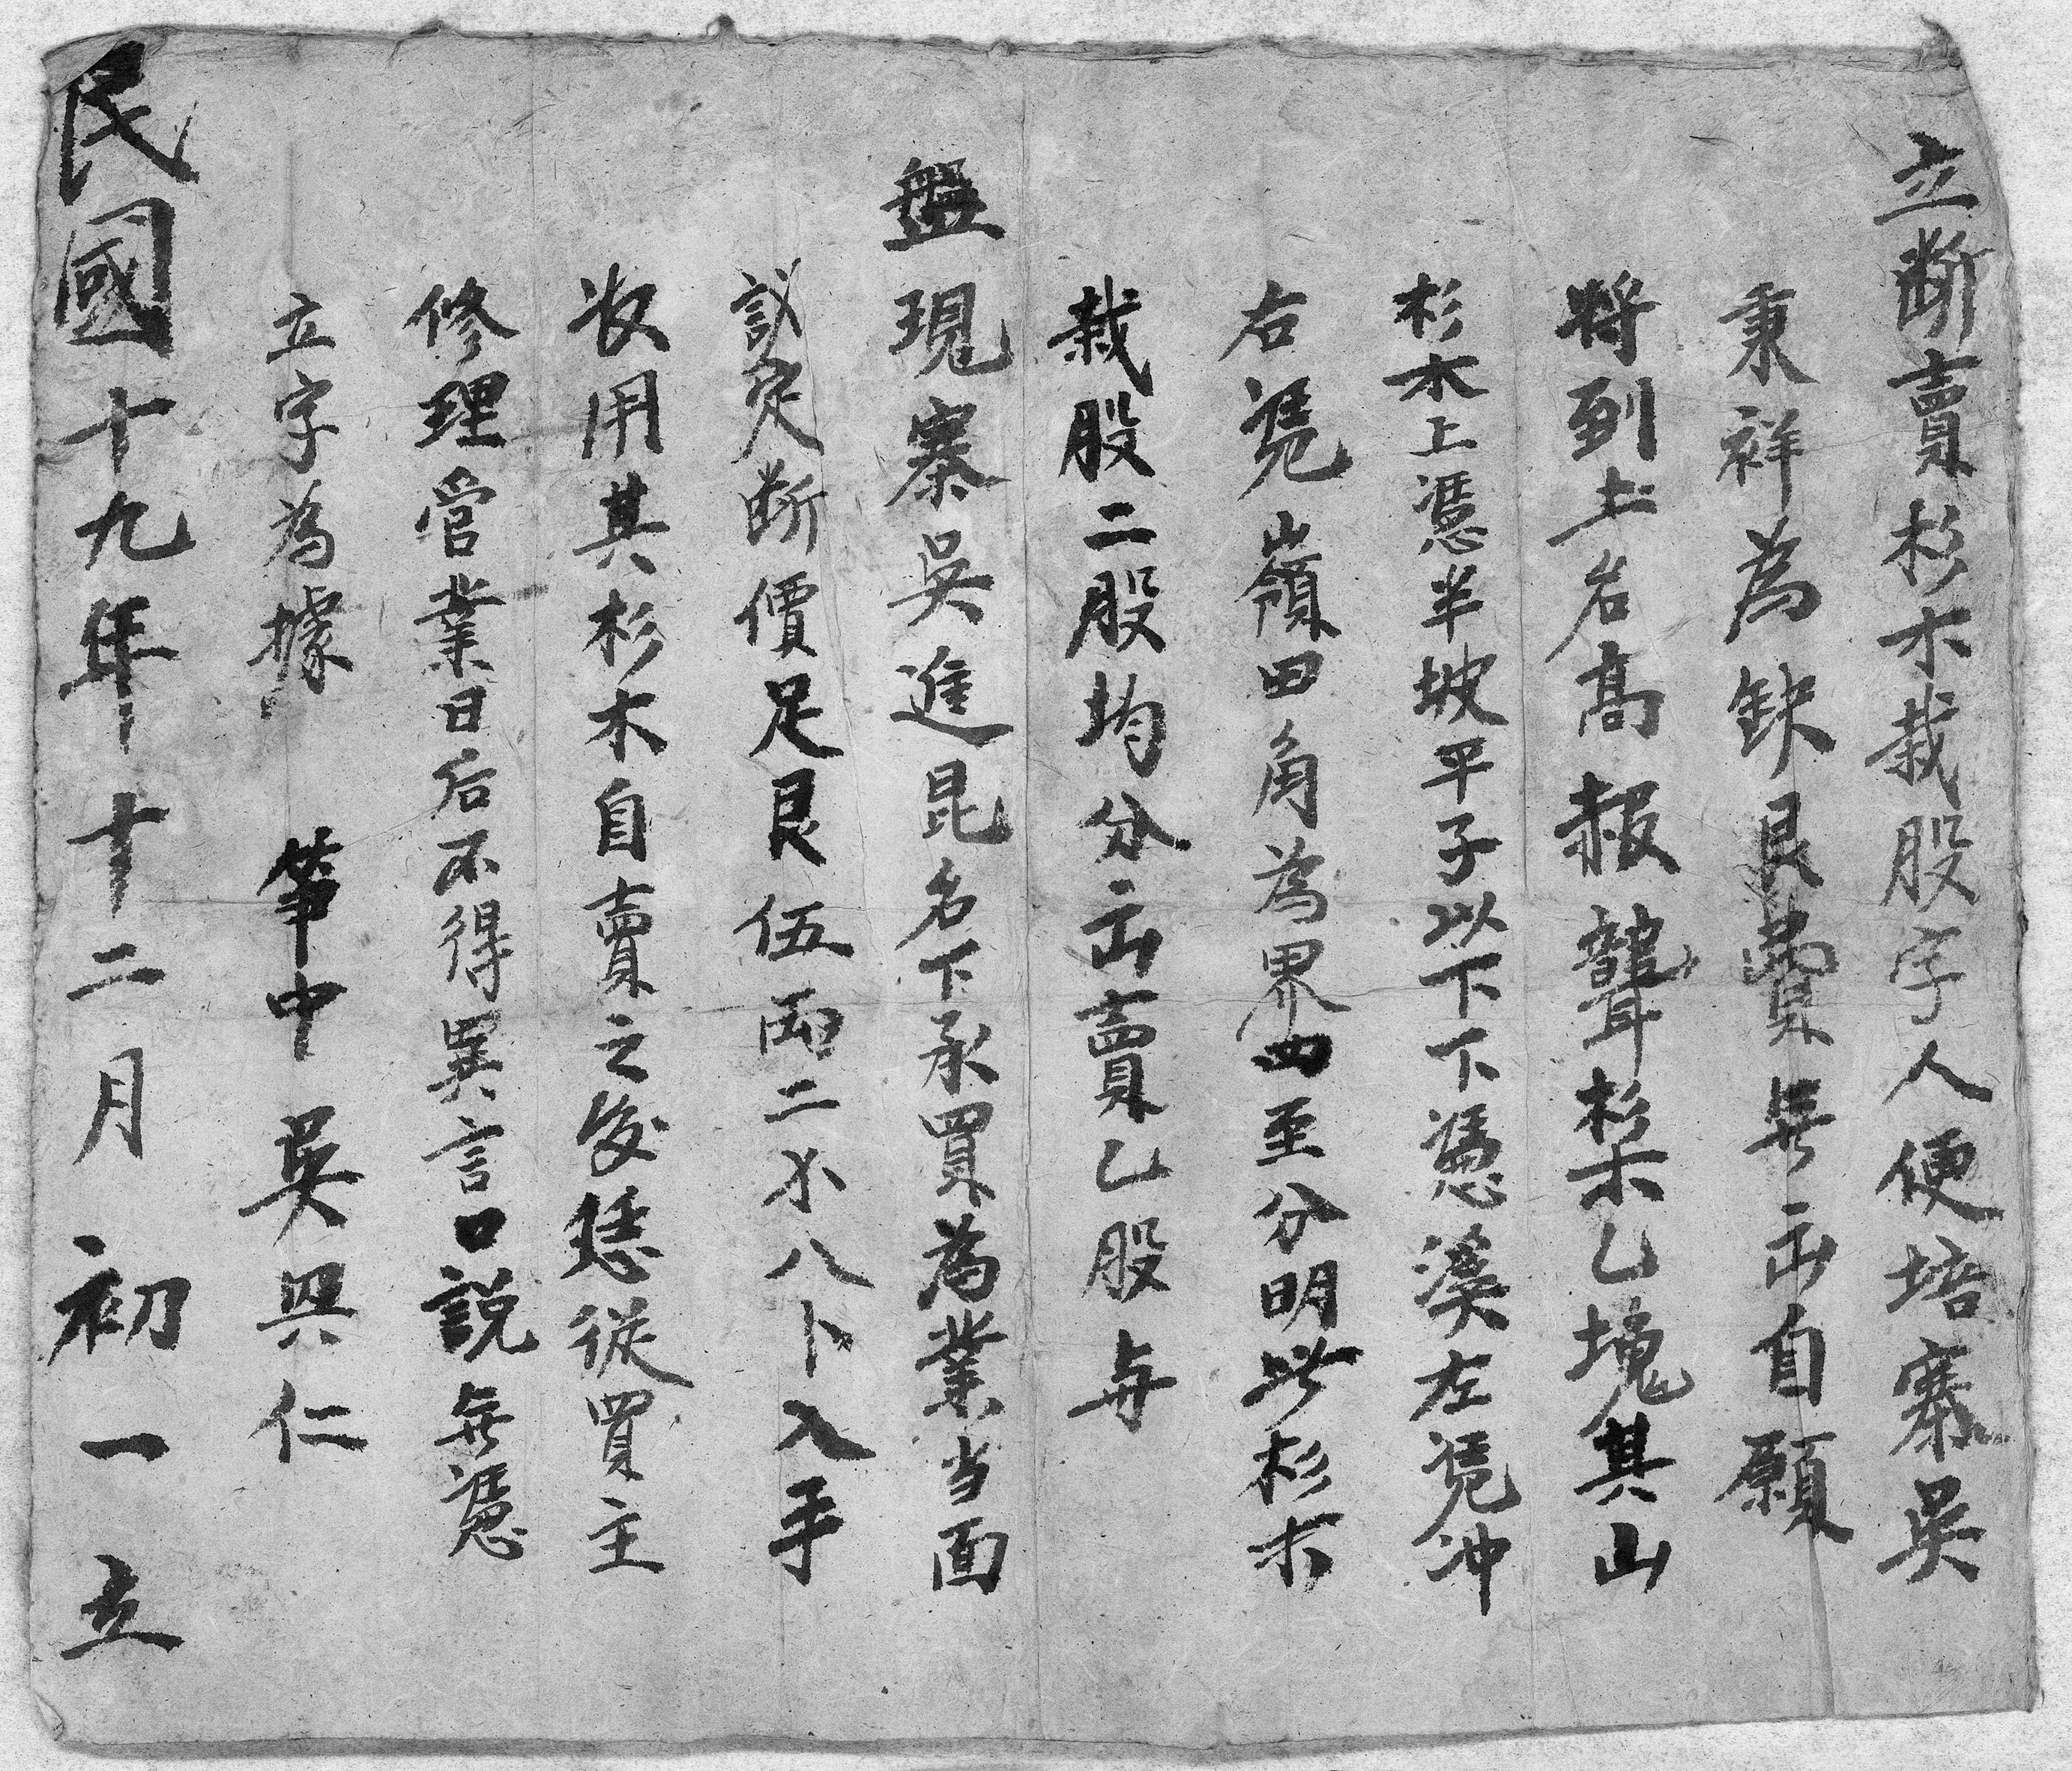 立断賣杉木栽股字人便培寨吳
秉祥為缺艮費無出自願
將到土岩髙報聾杉木乙塊其山
杉木上憑半坡平子以下下憑溪左凴冲
右凴嶺田角為界四至分明此杉木
栽股二股均分出賣乙股与
盤現寨吳進昆名下承買為業当面
議定断價足艮伍両二小八卜入手
收用其杉木自賣之後恁従買主
修理管業日后不得異言口説無憑
立字為據 筆中 吳興仁
民國十九年十二月初一立